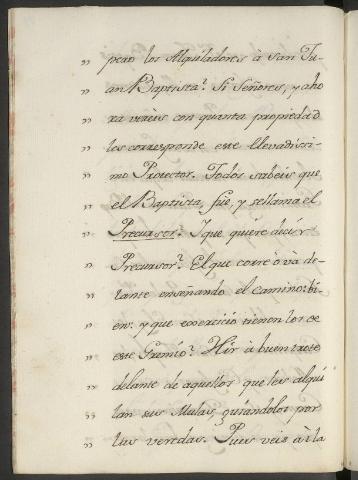 „ pean los Alquiladores à San Ju-
„ an Baptista? Si Señores, y aho
„ ra vereis con quanta propiedad
„ les corresponde este llevadissi-
„ mo Protector. Todos sabeis que
„ el Baptista, fue, y se llama el
„ Precursor. Y que quiere decir
„ Precursor? El que corre ò và de-
„ lante enseñando el camino: bi-
„ en: y que exercicio tienen los de
„ este Gremio? Hir à buen trote
„ delante de aquellos que les alqui
„ lan sus Mulas, guiandolos por
„ las veredas. Pues veis aì la